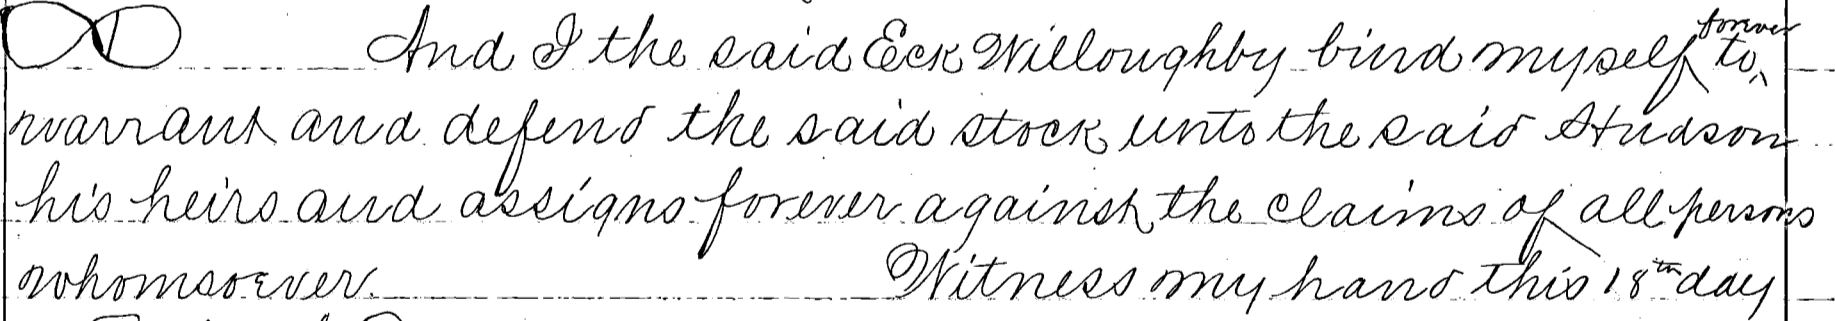 And I the said Eck Willoughby bind myself to forever
warrant and defend the said stock unto the said Hudson
his heirs and assigns forever against the claims of all persons
whomsoever. Witness my hand this 18th day